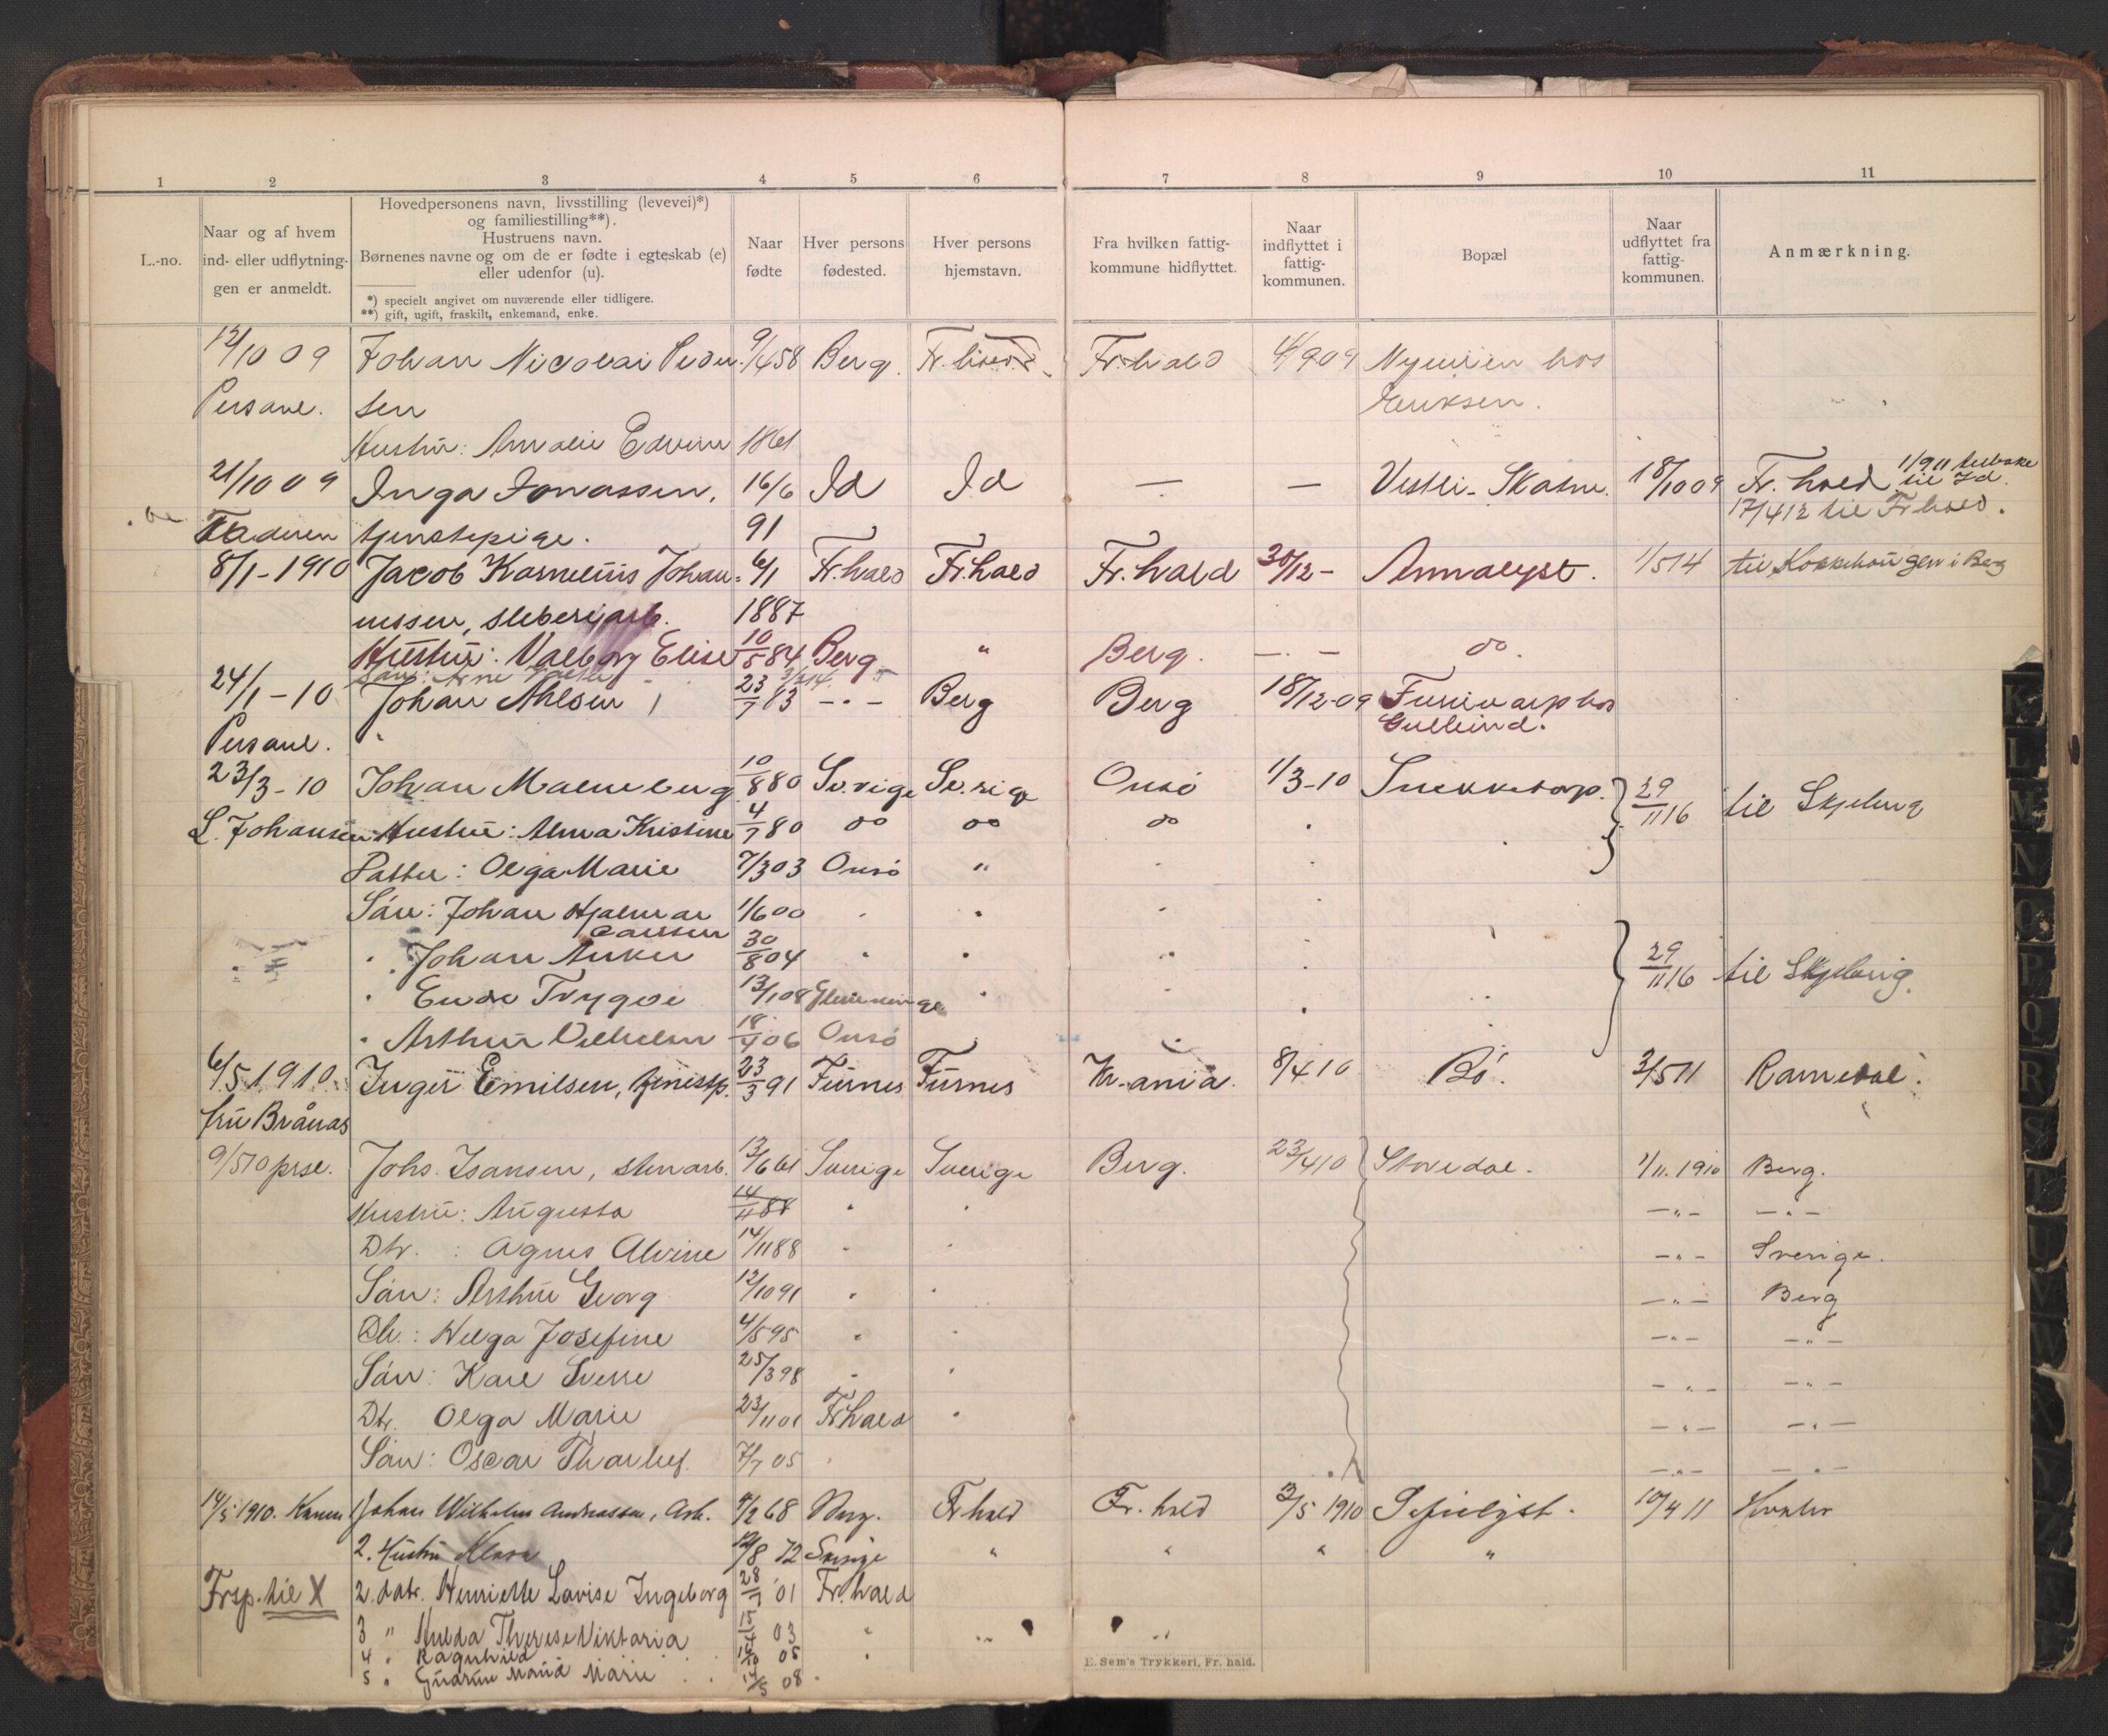 1 2 3 4 5 6 7 8 9 10 11
L.-no.
Naar og af hvem
ind- eller udflytnin-
gen er anmeldt.
Hovedpersonens navn, livsstilling (levevei)*)
og familiestilling**).
Hustruens navn.
Børnenes navne og om de er fødte i egteskab (e)
eller udenfor (u).
*) specielt angivet om nuværende eller tidligere.
**) gift, ugift, fraskilt, enkemand, enke.
Naar
fødte
Hver persons
fødested.
Hver persons
hjemstavn.
Fra hvilken fattig-
kommune hidflyttet.
Naar
indflyttet i
fattig-
kommunen.
Bopæl
Naar
udflyttet fra
fattig-
kommunen.
Anmærkning.
12/10 09 Johan Nicolai Peder- 9/4 58 Berg. Fr.hald Fr.hald 4/9 09 hos
sen Eriksen.
Hustru: Amalie Edvine 1861
21/10 09 Inga Jonassen, 16/6 Id Id — — Vestli-Skatne. 18/10 09 Fr. hald 1/9 11 tilbake til Id.
17/4 12 til Fr hald.
Faderen tjenstepige. 91
8/1-1910 Jacob Kornelius Johan- 6/1 Fr.hald Fr.hald Fr.hald 30/12- Annalyst. 1/5 14 til Kokkehougen i Berg
nessen, sliberiarb. 1887
Hustru: Valborg Elise 10/5 84 Berg " Berg. —.— do.
Søn: Arne
24/1-10 Johan Ahlsen, 23/7 83 -"- Berg Berg 18/12-09 hos
Gullund.
23/3-10 Johan Malmeberg 10/8 80 Sverige Sverige Onsø 1/3-10 Snekketorp. 29/11 16 til Skjeberg
L. Johansen Hustru: Alma Kristine 4/7 80 do do do
Datter: Olga Marie 7/3 03 Onsø "
Søn: Johan Hjalmar 1/6 00
Carlsen
" Johan Anker 30/8 04 29/11 16 til Skjeberg.
" Trygve 13/1 08 Glemminge
" Arthur Vilhelm 18/4 06 Onsø
6/5 1910. Inger Emilsen, tjenestp. 23/3 91 Furnes Furnes Kr.ania. 8/4 10 Bø. 3/5 11 Ramedal.
fru Brånås
9/5 10 prse. Johs. Isaksen, stenarb. 13/6 61 Sverige Sverige Berg. 23/4 10 Storedal. 1/11. 1910 Berg.
Hustru: Augusta 14/11 88 " " —"— —"—
Dtr. : Agnes Alvine 14/11 88 " " —"— Sverige.
Søn: Arthur Georg 12/10 91 " " —"— Berg
Dtr.: Helga Josefine 4/5 95 " " —"— —"—
Søn: Karl Sverre 25/3 98 " " —"— —"—
Dtr. Olga Marie 23/11 01 Fr.hald " —"— —"—
Søn: Oscar Thorleif. 7/7 05 " —"— —"—
14/5 1910. 1 Johan Wilhelm Andreassen, Arb. 4/2 68 Berg. Fr hald Fr. hald 3/5 1910 Sofielyst. 10/4 11 Hvaler
2. Hustru Klara 19/8 72 Sverige " " " "
Frsp. til X 2. datr. Henriette Lovise Ingeborg 28/7 01 Fr. hald
3 " Hulda Therese Viktoria 03 "
4 " Ragnhild 05 "
5 " Gudrun Maria Marie 14/5 08 "
E. Sem's Trykkeri, Fr. hald.
K
L
M
N
O
P
Q
R
S
T
U
V
W